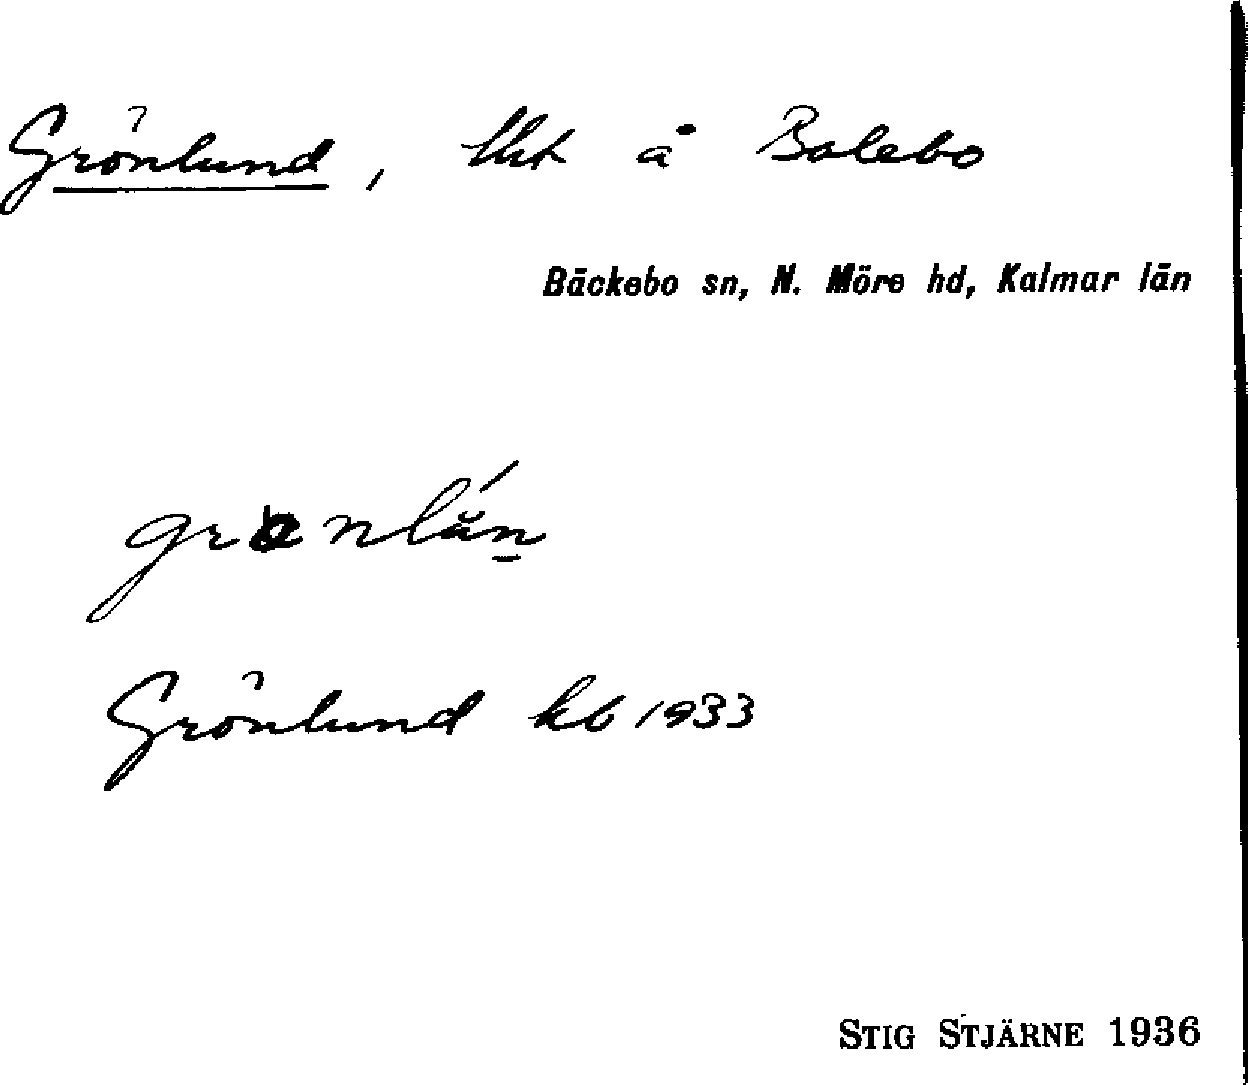 Grönlund, lht å Bolebo
Bäckebo sn, N. Möre hd, Kalmar län
Grönlund kb 1933
STIG STJÄRNE 1936